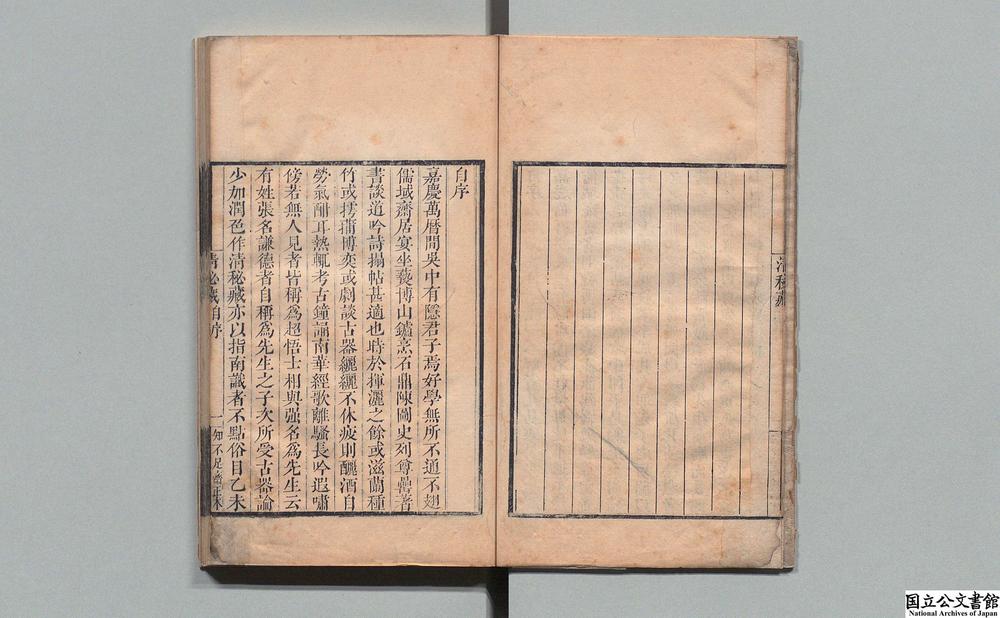 自序
嘉慶萬曆間吳中有隱君子焉好學無所不通不翅
儒域齋居宴坐爇博山鑪烹石鼎陳圖史列尊罍著
書談道吟詩搨帖甚適也時於揮灑之餘或滋蘭種
竹或摴蒱博奕或劇談古器纚纚不休疲則釃酒自
勞氣酣耳熱輒考古鐘誦南華經歌離騷長吟遐嘯
傍若無人見者皆稱爲超悟士相與強名爲先生云
有姓張名謙德者自稱爲先生之子次所受古器論
少加潤色作清秘藏亦以指南識者不點俗目乙未
清秘藏自序
一
知不足齋正本
清秘藏
国立公文書館
National Archives of Japan